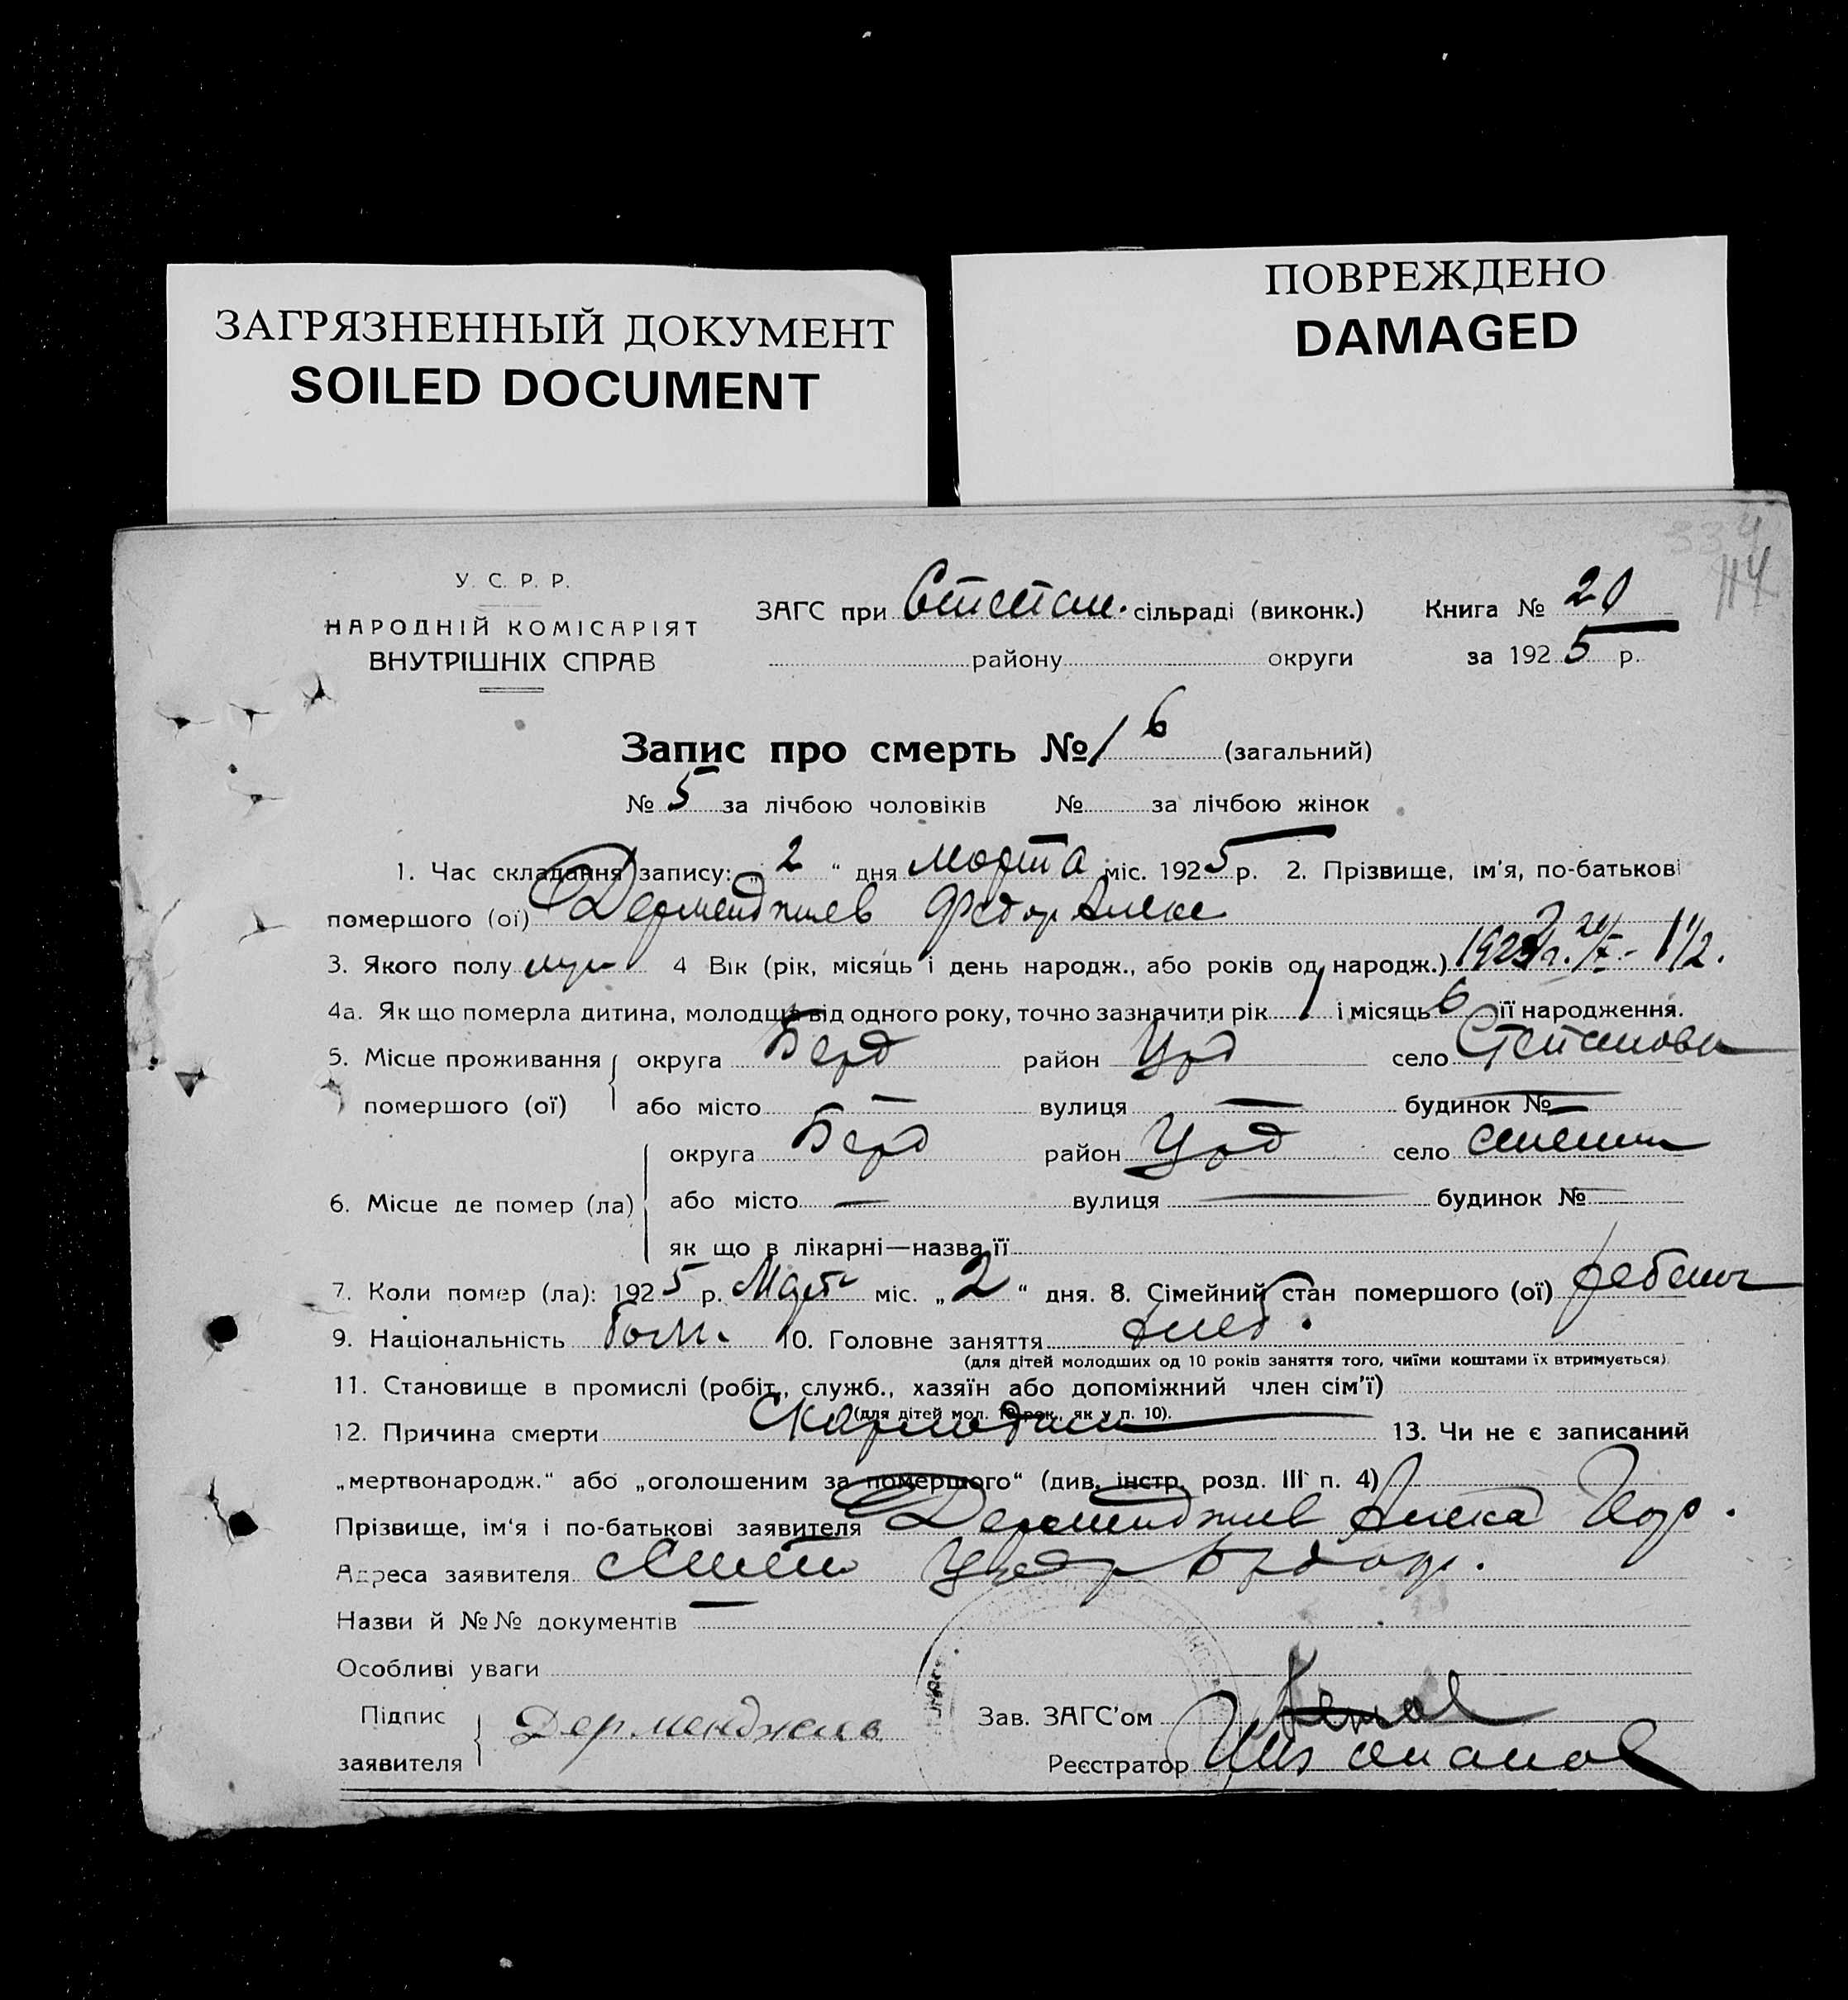 ЗАГРЯЗНЕННЫЙ ДОКУМЕНТ
SOILED DOCUMENT
ПОВРЕЖДЕНО
DAMAGED
334
114
У. С. Р. Р.
НАРОДНІЙ КОМІСАРІЯТ
ВНУТРІШНІХ СПРАВ
ЗАГС при Степан. сільраді (виконк.)
району округи
Книга № 20
за 1925 р.
Запис про смерть № 16 (загальний)
№ 5 за лічбою чоловіків № за лічбою жінок
1. Час складання запису: „ 2 “ дня марта міс. 1925 р. 2. Прізвище, ім'я, по-батькові
помершого (ої) Дерменджиев Федор Алекс
3. Якого полу муж 4 Вік (рік, місяць і день народж., або років од народж.) 1 1/2.
4а. Як що померла дитина, молодща від одного року, точно зазначити рік 1 і місяць 6 її народження.
5. Місце проживання округа Берд район Црд село Степановка
помершого (ої) або місто — вулиця — будинок № —
округа Берд район Црд село
6. Місце де помер (ла) або місто — вулиця — будинок № —
як що в лікарні—назва її
7. Коли помер (ла): 1925 р. Март міс. „ 2 “ дня. 8. Сімейний стан помершого (ої) ребенок
9. Національність Болг. 10. Головне заняття хлеб.
(для дітей молодших од 10 років заняття того, чиїми коштами їх втримується)
11. Становище в промислі (робіт., служб., хазяїн або допоміжний член сім'ї)
(для дітей мол. 10 рок., як у п. 10).
12. Причина смерти Скарлатина 13. Чи не є записаний
„мертвонародж.“ або „оголошеним за помершого“ (див. інстр. розд. III п. 4)
Прізвище, ім'я і по-батькові заявителя Дерменджиев Алекса
Адреса заявителя
Назви й №№ документів —
Особливі уваги
Підпис
заявителя
Дерменджиев
Зав. ЗАГС'ом
Реєстратор